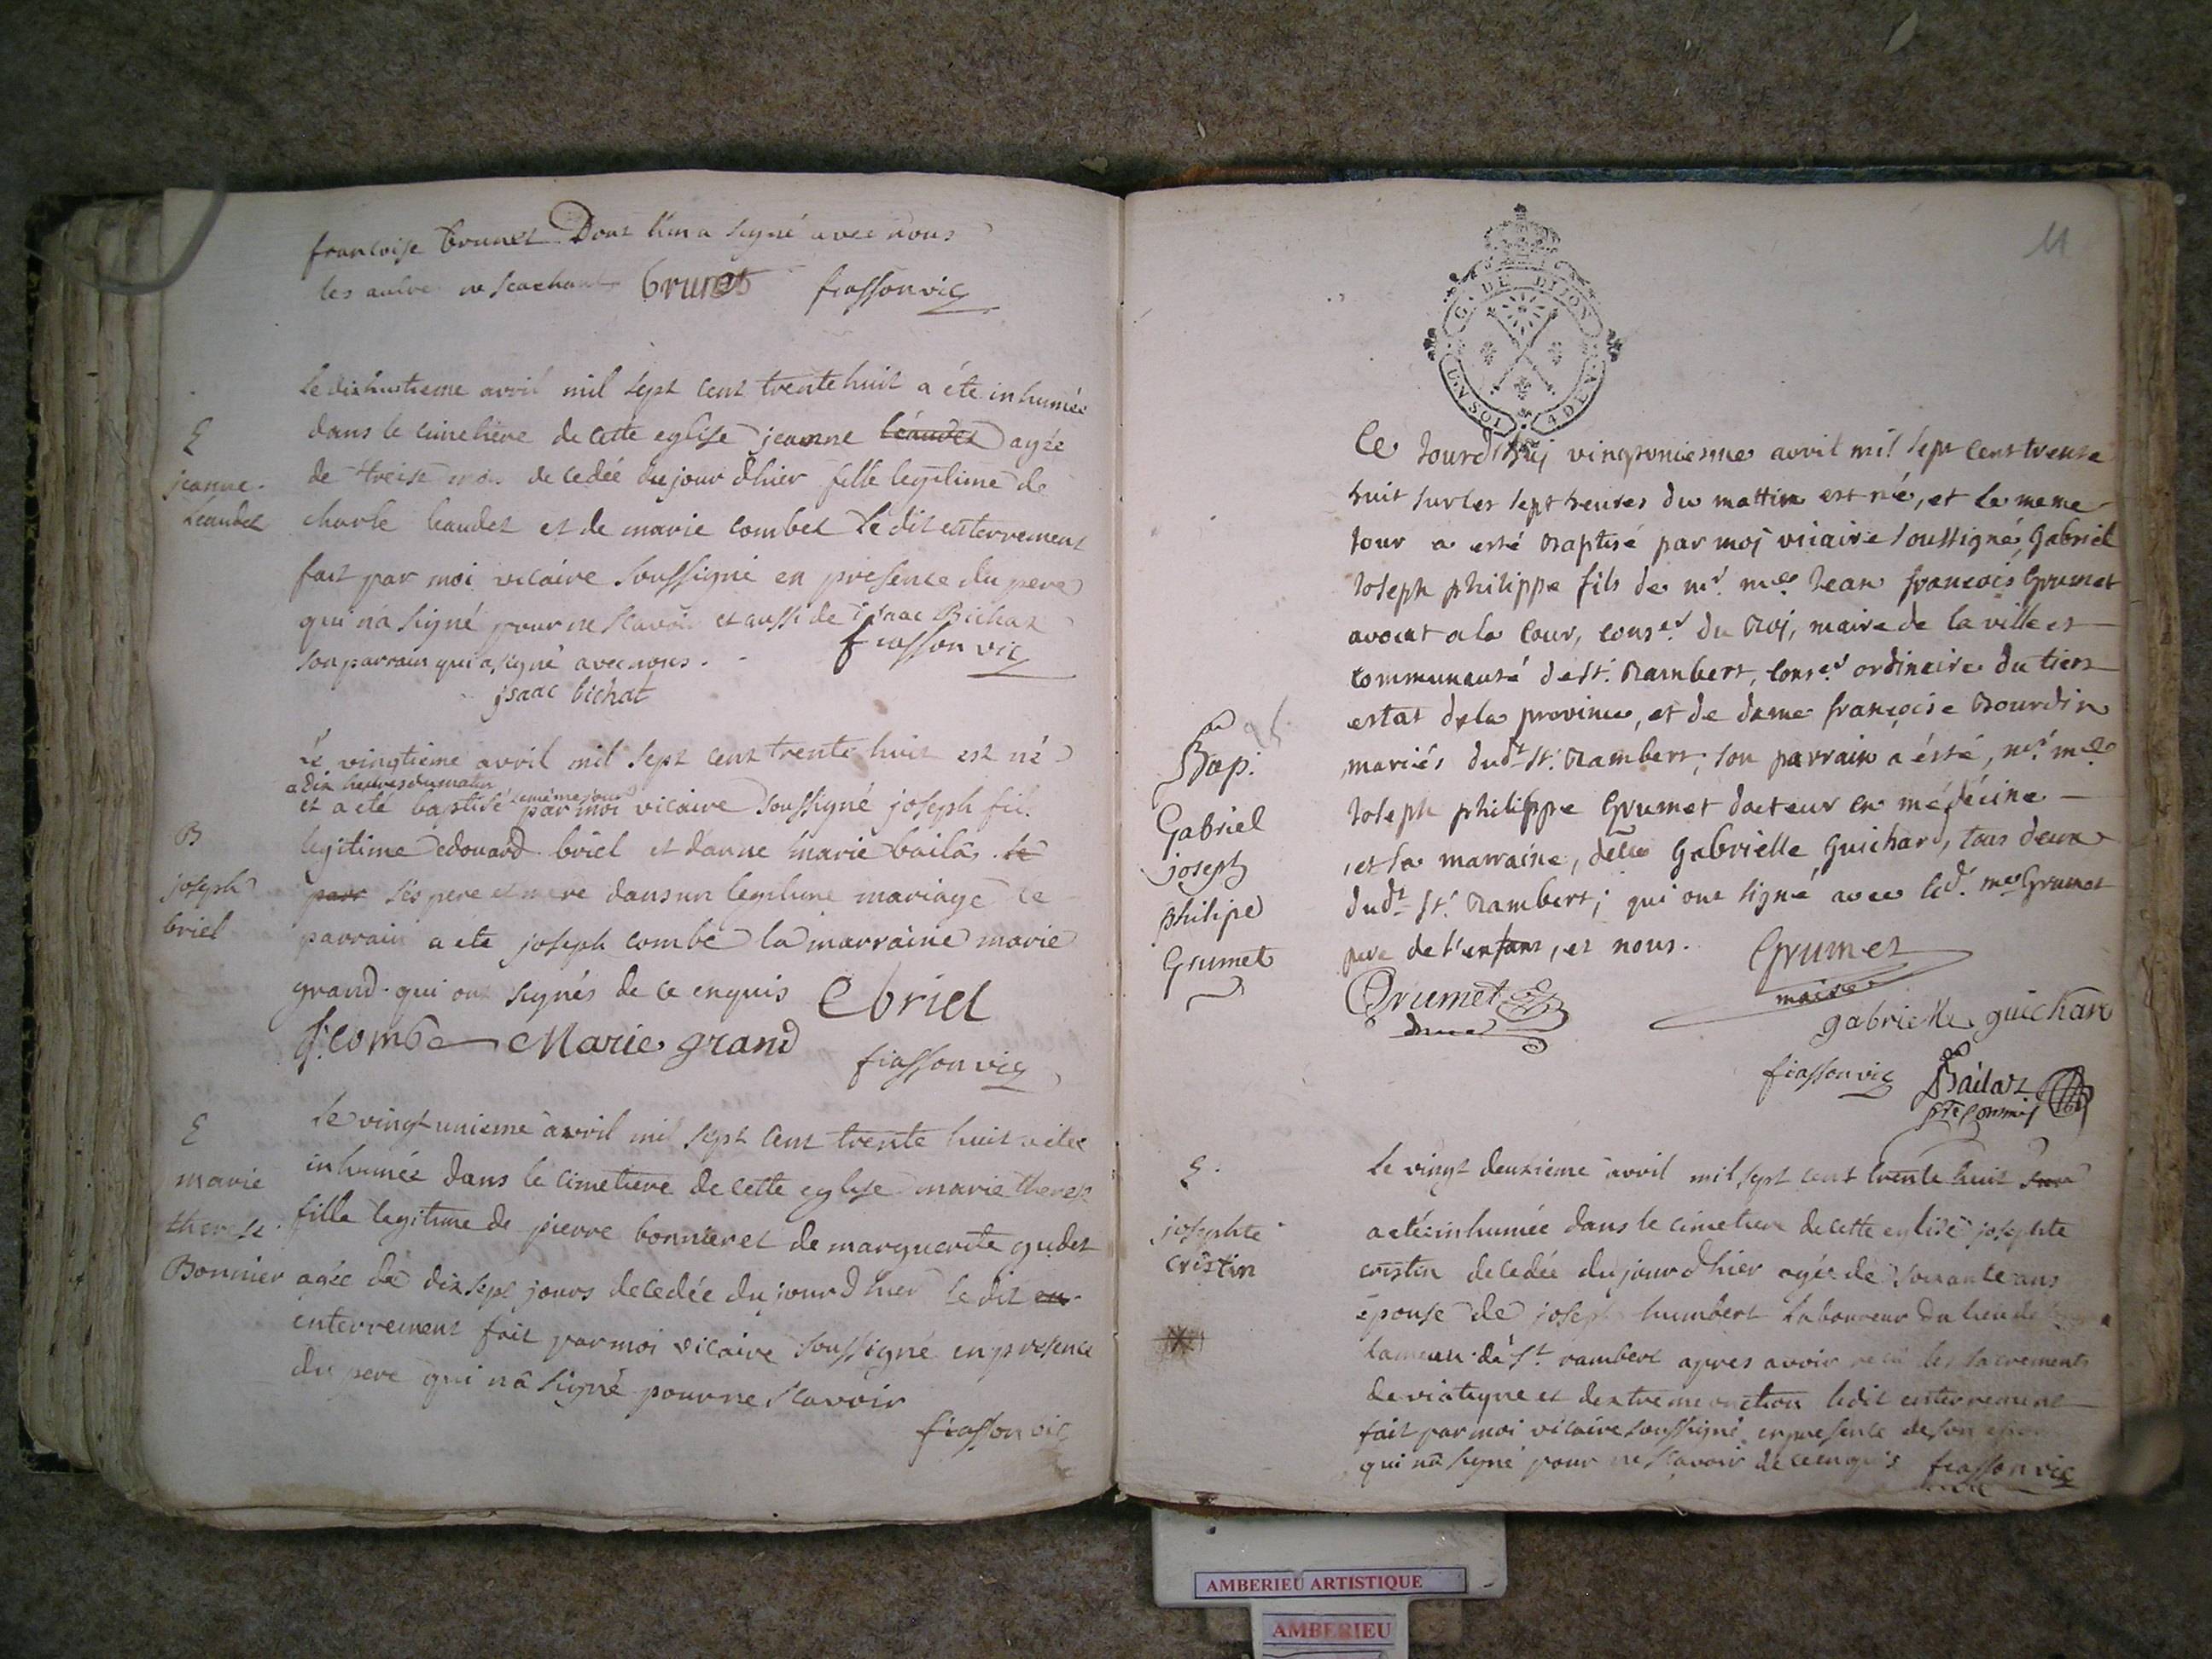 francoise brunet Dont l'un a signé avec nous
les autres ne scachant brunet fiasson vic
Le dixhuitieme avril mil sept cent trente huit a été inhumée
dans le cimetiere de cette eglise jeanne leaudet agée
E
jeanne
Leaudet
de treise mois decedée du jour dhier fille legitime de
charle leaudet et de marie combet le dit enterrement
fait par moi vicaire soussigné en presence du pere
qui n'a signé pour ne scavoir et aussi de isaac Bichat
son parrain qui a signé avec nous. fiasson vic
isaac bichat
Le vingtieme avril mil sept cent trente huit est né
a dix heures du matin
et a été baptisé le même jour par moi vicaire soussigné joseph fils
B
joseph
briel
legitime edouard briel et d'anne marie bailà. le
parr ses pere et mere dans un legitime mariage le
parrain a été joseph combe la marraine marie
grand qui ont signés de ce enquis Ebriel
J. combe Marie grand fiasson vic
E
marie
therese
Bonnier
Le vingt unieme avril mil sept cent trente huit a été
inhumée dans le cimetiere de cette eglise marie therese
fille legitime de pierre bonnier et de marguerite gudet
agée de dix sept jours decedée du jour d hier le dit en
enterrement fait par moi vicaire soussigné en presence
du pere qui n'a signé pour ne scavoir
fiasson vic
11
G. DE DIJON
UN SOL 4 DEN.
Ce jourd'huj vingtuniesme avril mil sept cent trente
huit sur les sept heures du mattin est né, et le meme
jour a esté Baptisé par moj vicaire soussigné, Gabriel
Joseph philippe fils de mr. me. Jean françois Grumet
avocat a la Cour, conser. du Roj, maire de la ville et
communauté de st. Rambert, conser. ordinaire du tiers
estat de la province, et de dame françoise Bourdin
mariés dudt st. Rambert, son parrain a ésté, mr. me.
Joseph philippe Grumet docteur en médécine
et la marraine, delle Gabrielle Guichard, tous deux
dudt st. Rambert; qui ont signé avec led. me Grumet
pere de l'enfant, et nous. Grumet
maire
Bap.
Gabriel
joseph
philipe
Grumet
Grumet
gabrielle guichard
fiasson vic Bailat
ptre commis
E.
josephte
cristin
Le vingt deuxieme avril mil sept cent trente huit
a été inhumée dans le cimetiere de cette eglise josephte
cristin decedée du jour d hier agée de soixante ans
épouse de joseph humbert laboureur du lieu de
hameau de st rambert apres avoir reçu les sacrements
de viatique et d'extreme onction ledit enterrement
fait par moi vicaire soussigné en presence de son epoux
qui n'a signé pour ne scavoir de ce enquis fiasson vic
AMBERIEU ARTISTIQUE
AMBERIEU